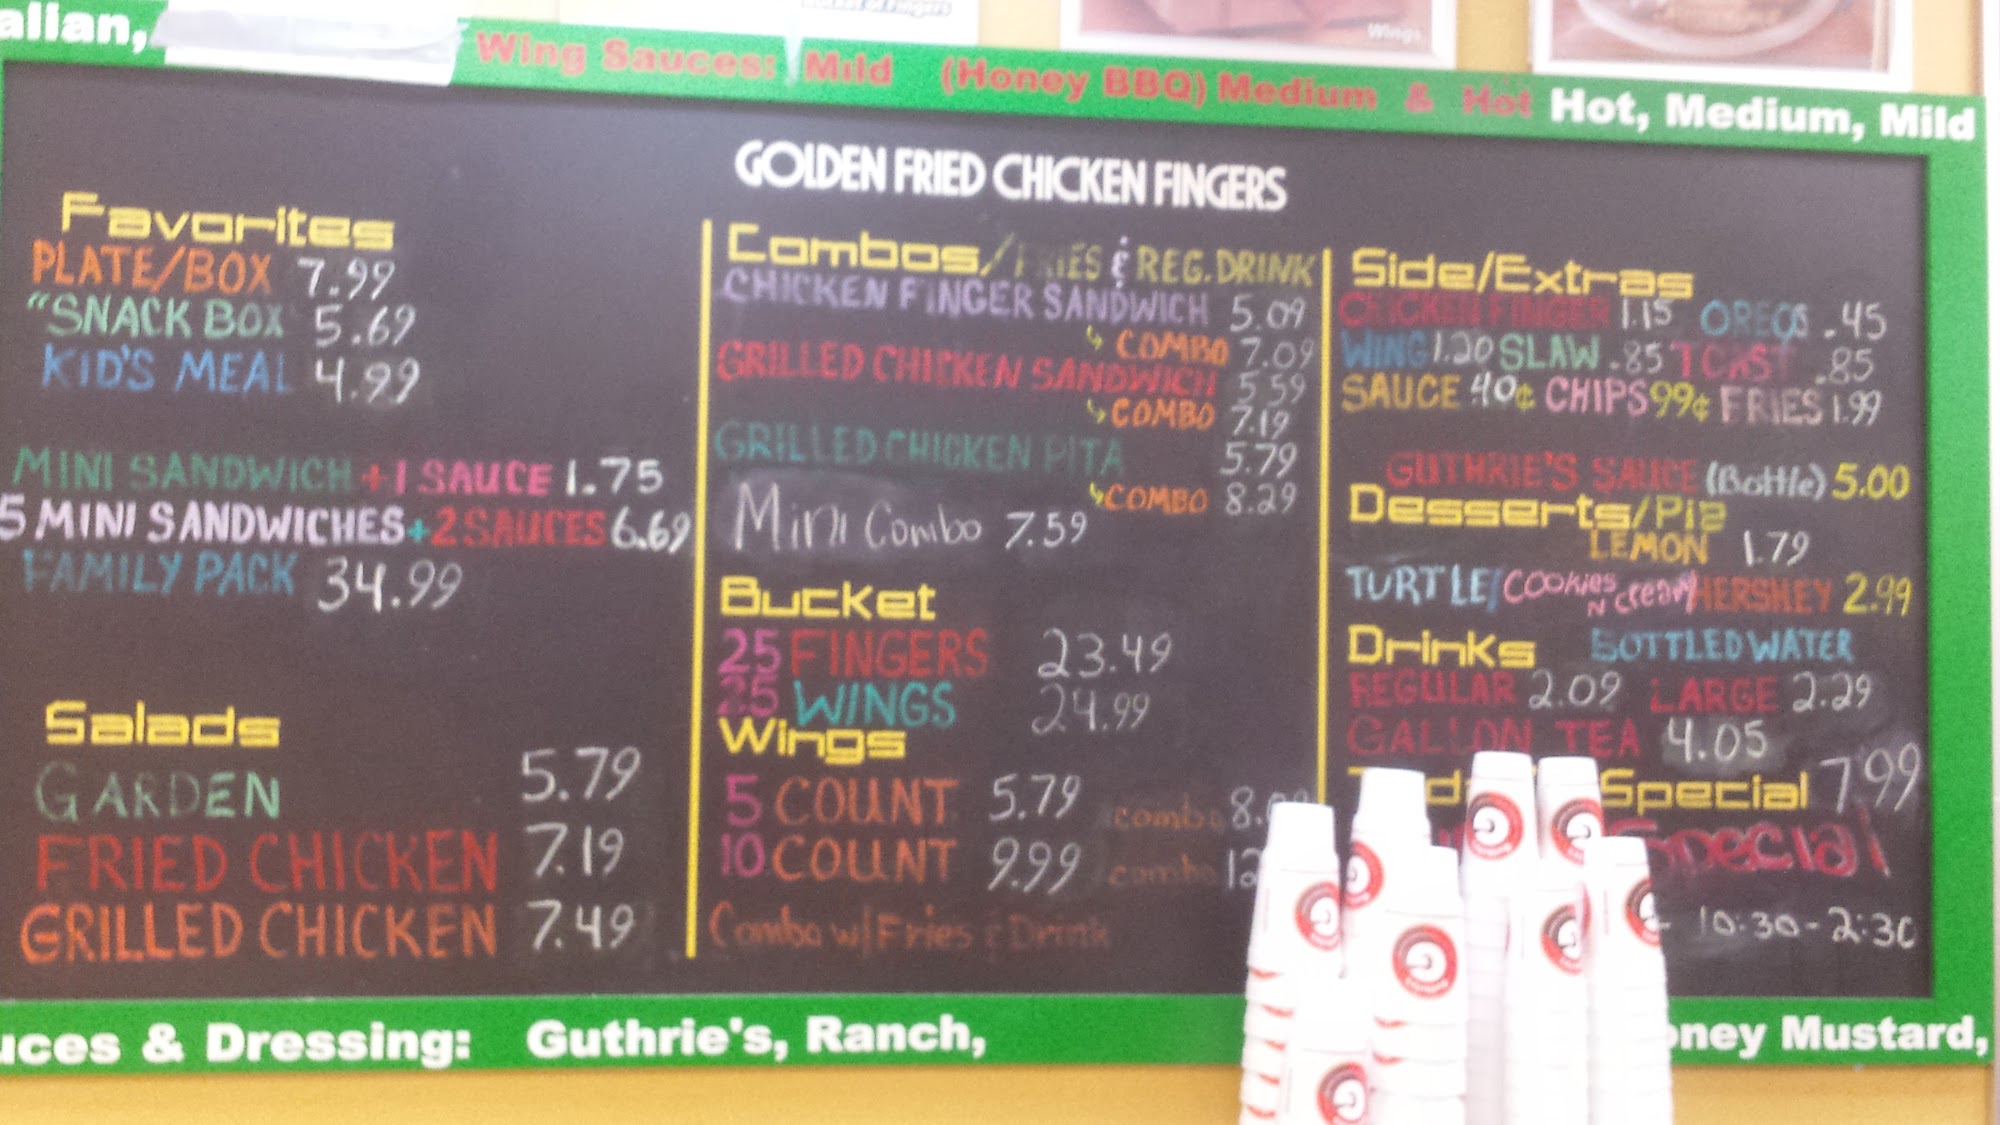 Bucket of Fingers
Wings
Wing Sauces: Mild (Honey BBQ) Medium & Hot Hot, Medium, Mild
GOLDEN FRIED CHICKEN FINGERS
Favorites
PLATE/BOX 7.99
"SNACK BOX 5.69
KID'S MEAL 4.99
MINI SANDWICH +1 SAUCE 1.75
5 MINI SANDWICHES+2 SAUCES 6.69
FAMILY PACK 34.99
Salads
GARDEN 5.79
FRIED CHICKEN 7.19
GRILLED CHICKEN 7.49
Combos/FRIES & REG. DRINK
CHICKEN FINGER SANDWICH 5.09
COMBO 7.09
GRILLED CHICKEN SANDWICH 5.59
COMBO 7.19
GRILLED CHICKEN PITA 5.79
COMBO 8.29
Mini Combo 7.59
Bucket
25 FINGERS 23.49
25 WINGS 24.99
Wings
5 COUNT 5.79 combo
10 COUNT 9.99 combo
Combo w/Fries & Drink
Side/Extras
CHICKEN FINGER 1.15 OREOS .45
WING 1.20 SLAW .85 TOAST .85
SAUCE .40¢ CHIPS 99¢ FRIES 1.99
GUTHRIE'S SAUCE (Bottle) 5.00
Desserts/Pie
LEMON 1.79
TURTLE/COOKIES N CREAM/HERSHEY 2.99
Drinks BOTTLED WATER
REGULAR 2.09 LARGE 2.29
GALLON TEA 4.05
Special 7.99
Special
10:30-2:30
& Dressing: Guthrie's, Ranch, Mustard,